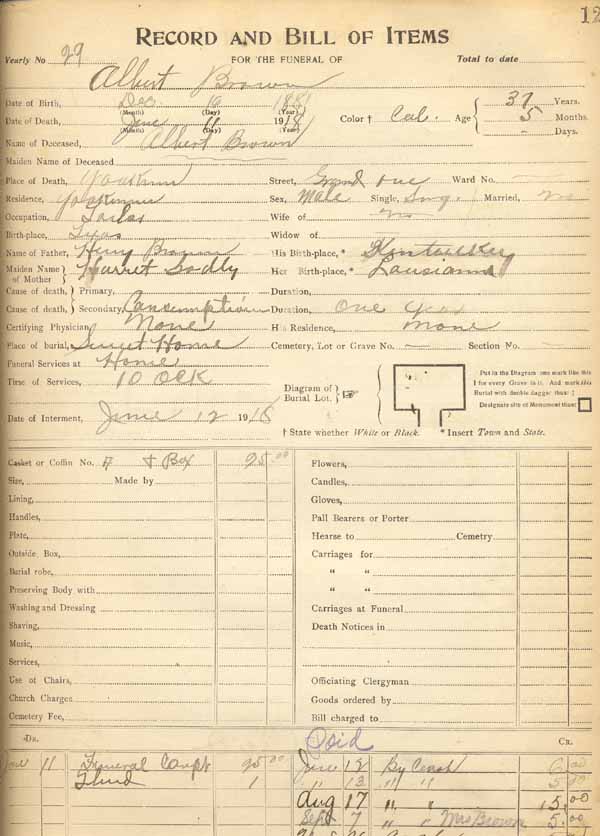 12
RECORD AND BILL OF ITEMS
Yearly No 29 FOR THE FUNERAL OF Total to date
Albert Brown
Date of Birth, Dec 10 1881 37 Years.
(Month) (Day) (Year)
Date of Death, June 11 1918 Color † Col. Age 5 Months.
(Month) (Day) (Year) - Days.
Name of Deceased, Albert Brown
Maiden Name of Deceased
Place of Death, Yoakum Street, Grand ave Ward No.
Residence, Yoakum Sex, Male Single, Sing. Married, no
Occupation, Wife of no
Birth-place, Texas Widow of
Name of Father, Henry Brown His Birth-place,* Kentuckey
Maiden Name of Mother Harriet Her Birth-place,* Lousiana
Cause of death, Primary, Duration,
Cause of death, Secondary, Consumption Duration, one year
Certifying Physician, None His Residence, none
Place of burial, Sweet Home Cemetery, Lot or Grave No. Section No.
Funeral Services at Home
Time of Services, 10 Ock
Diagram of Burial Lot.
Put in the Diagram one mark like this
I for every Grave in it. And mark this
Burial with double dagger thus: ‡
Designate site of Monument thus:
Date of Interment, June 12 1918
† State whether White or Black. * Insert Town and State.
Casket or Coffin No. & Box 95.00 Flowers,
Size, Made by Candles,
Lining, Gloves,
Handles, Pall Bearers or Porter
Plate, Hearse to Cemetry
Outside Box, Carriages for
Burial robe, " "
Preserving Body with " "
Washing and Dressing Carriages at Funeral
Shaving, Death Notices in
Music,
Services,
Use of Chairs, Officiating Clergyman
Church Charges Goods ordered by
Cemetery Fee, Bill charged to
Dr. Paid Cr.
11 Funeral 95.00 June 12 By Cash 00
1 " 13 " " 5 00
Aug 17 " " 15.00
Sept 7 " " Mrs Brown 5.00